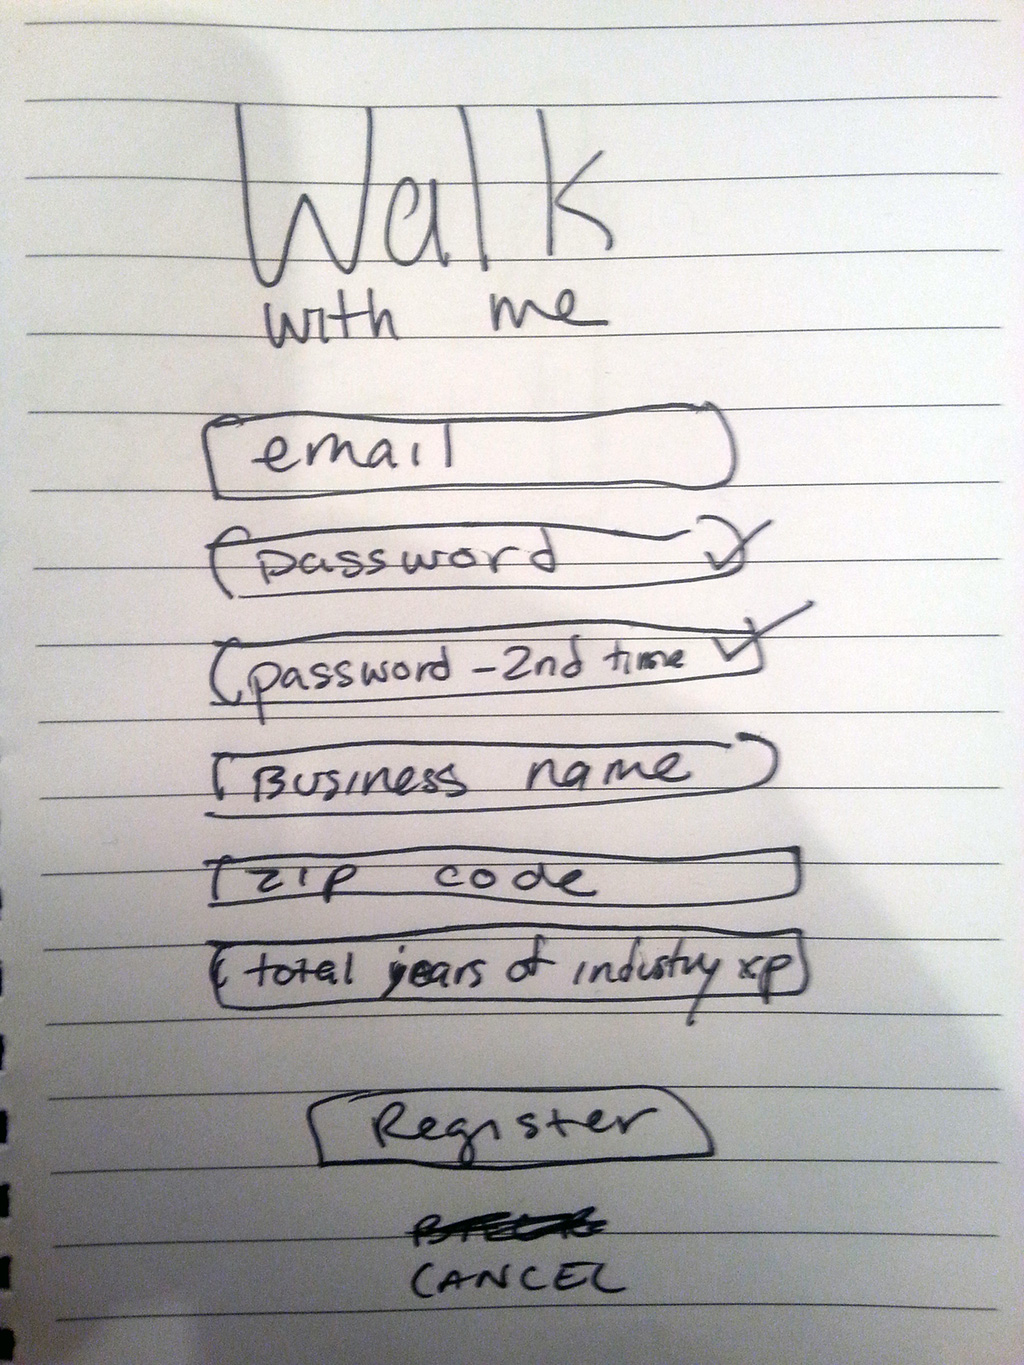 Walk
with me
email
password
password - 2nd time
Business name
zip code
total years of industry xp
Register
CANCEL